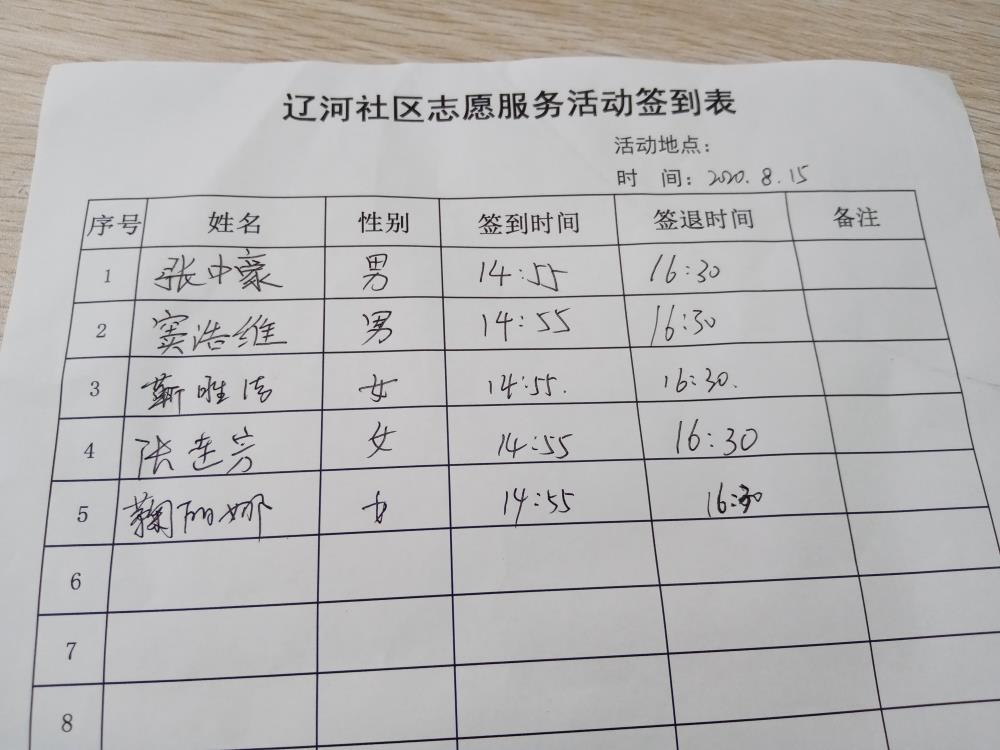 辽河社区志愿服务活动签到表
活动地点：
时 间：2020.8.15
序号 姓名 性别 签到时间 签退时间 备注
1 张中豪 男 14:55 16:30
2 窦浩维 男 14:55 16:30
3 靳唯 女 14:55. 16:30.
4 张莲芳 女 14:55 16:30
5 鞠丽娜 女 14:55 16:30
6
7
8